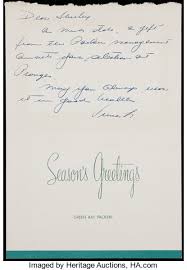 Dear Shirley
A much   a gift
from the Packer management
awaits your selection at
Pranges.
May you always wear
it in good health
Vince L.
Season's Greetings
GREEN BAY PACKERS
Imaged by Heritage Auctions, HA.com